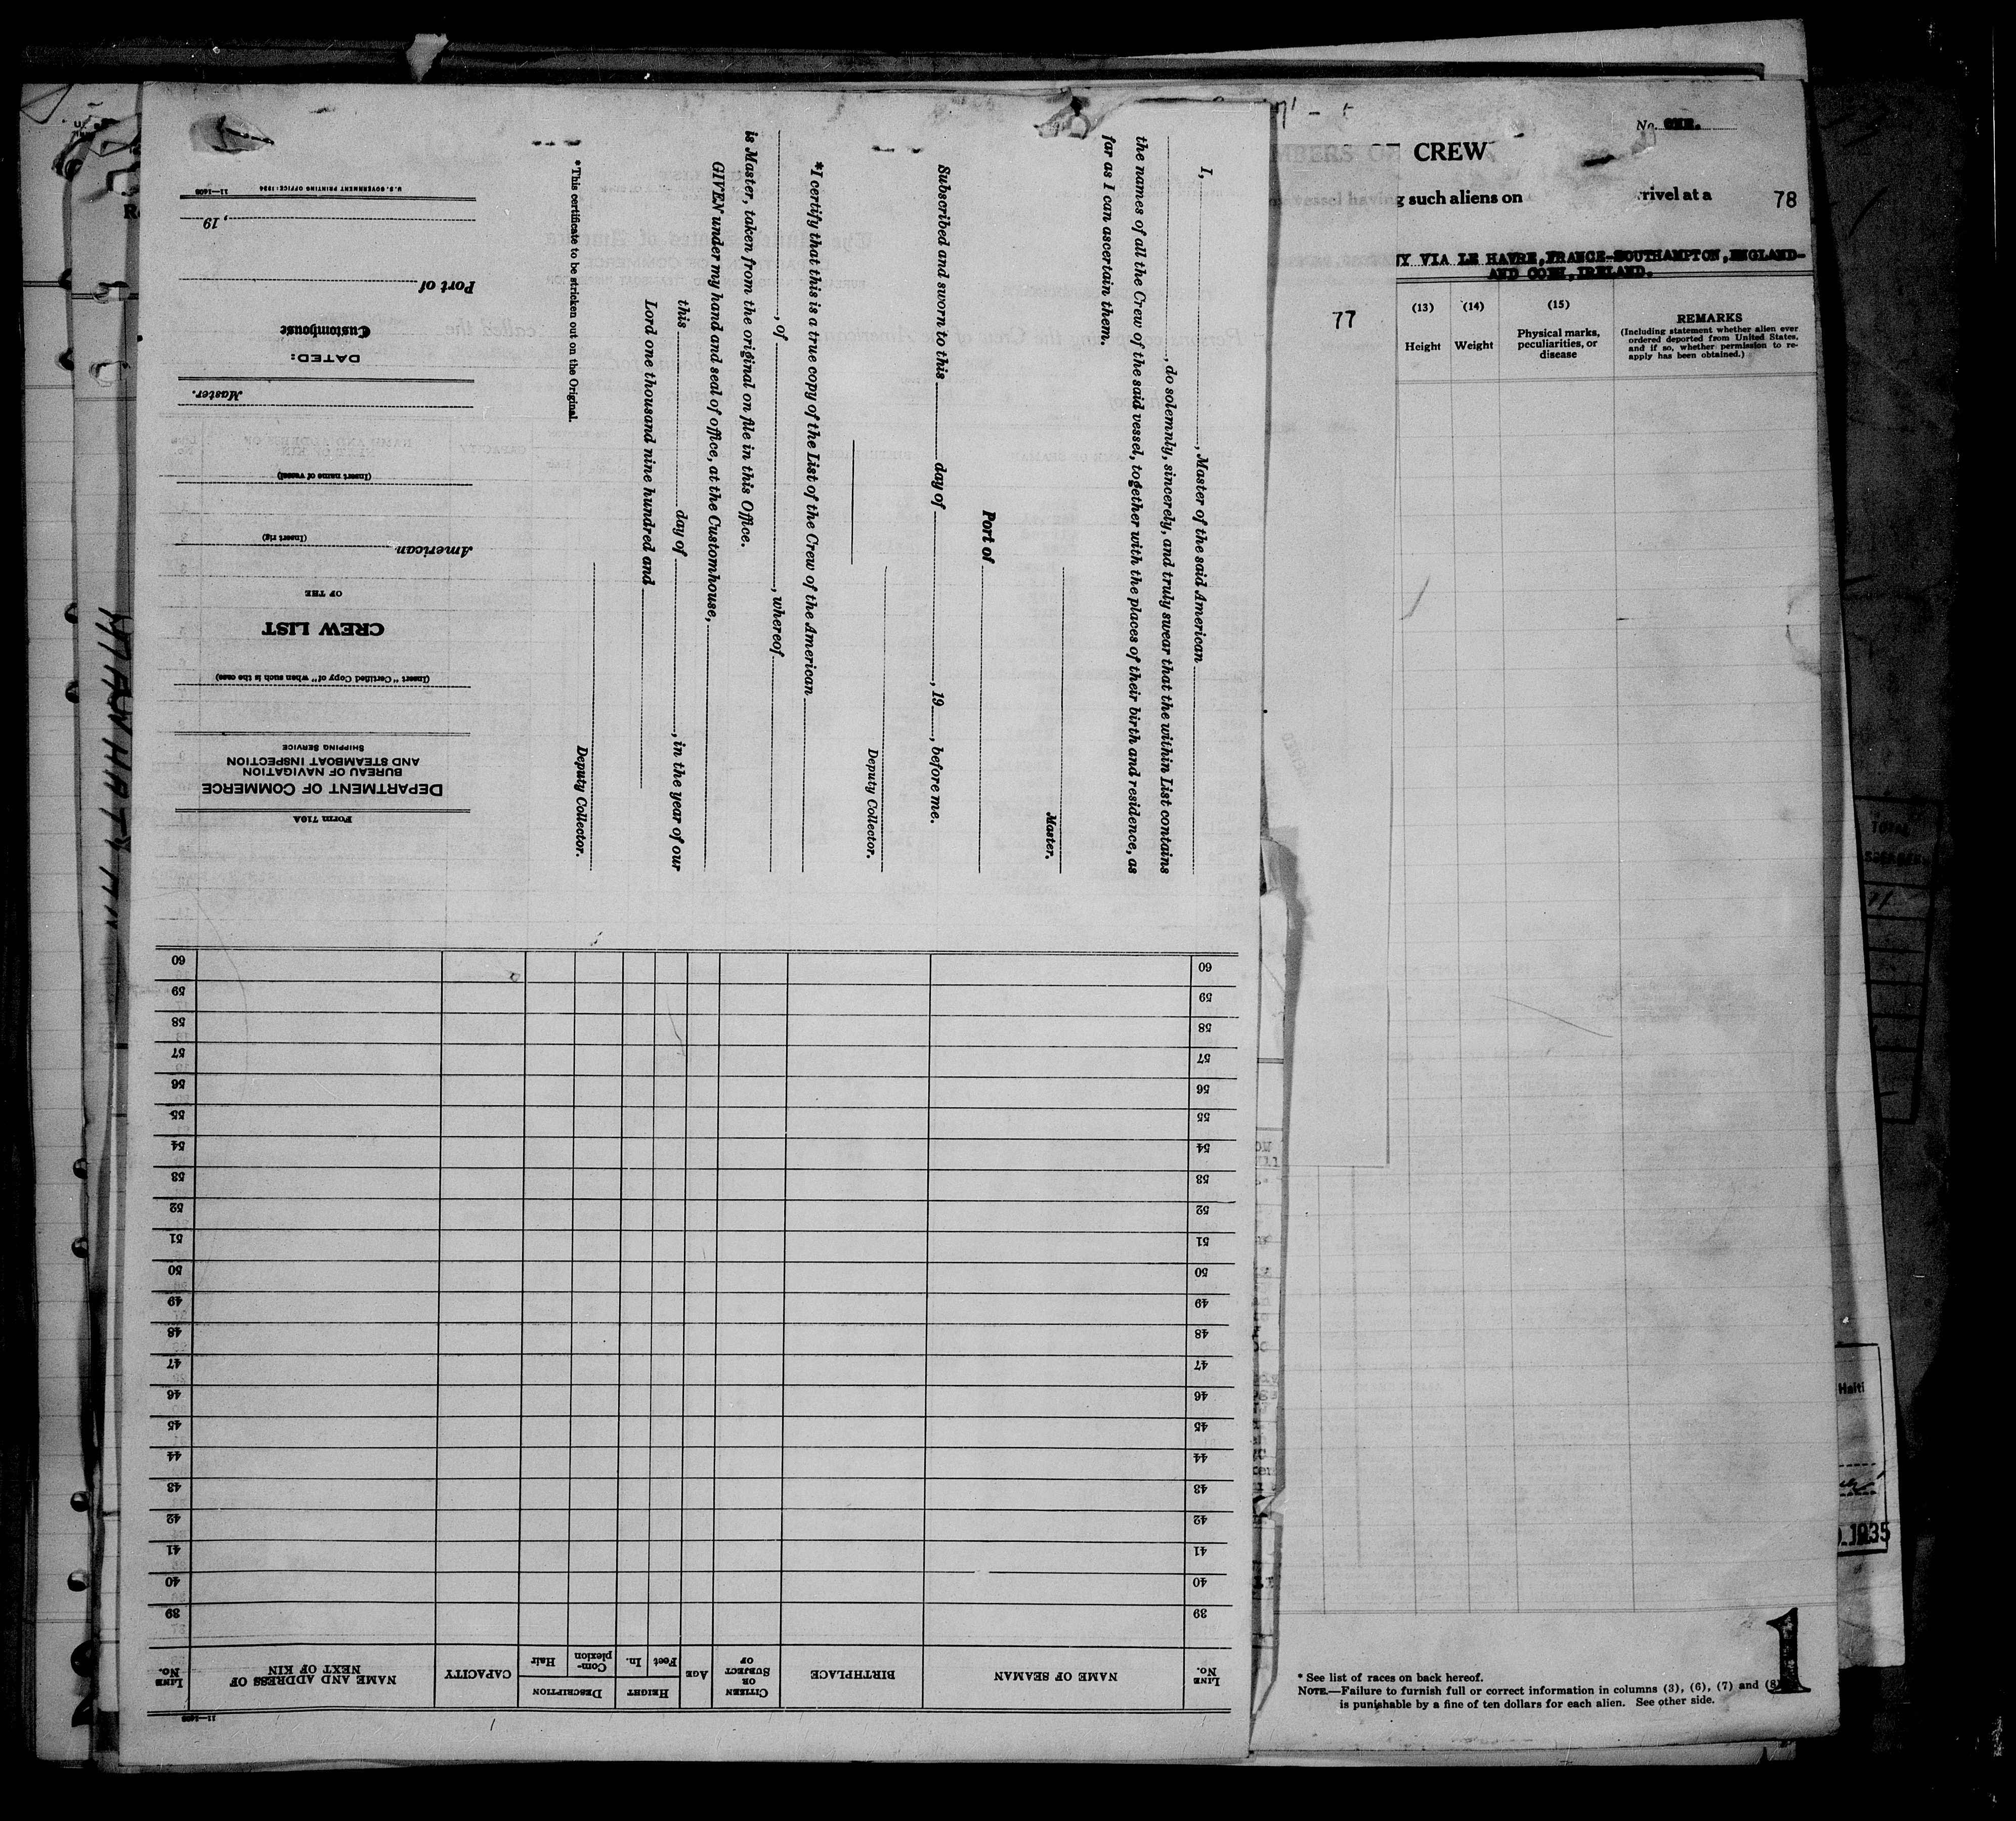 No. ONE.
MBERS OF CREW
vessel having such aliens on
rrival at a
78
TY VIA LE HAVRE, FRANCE-SOUTHAMPTON, ENGLAND-
AND COBH, IRELAND.
77
(13)
Height
(14)
Weight
(15)
Physical marks,
peculiarities, or
disease
REMARKS
(Including statement whether alien ever
ordered deported from United States,
and if so, whether permission to re-
apply has been obtained.)
* See list of races on back hereof.
NOTE.—Failure to furnish full or correct information in columns (3), (6), (7) and (8)
is punishable by a fine of ten dollars for each alien. See other side.
1
I, , Master of the said American
, do solemnly, sincerely, and truly swear that the within List contains
the names of all the Crew of the said vessel, together with the places of their birth and residence, as
far as I can ascertain them.
Master.
Port of
Subscribed and sworn to this day of , 19 , before me.
Deputy Collector.
*I certify that this is a true copy of the List of the Crew of the American
, of , whereof
is Master, taken from the original on file in this Office.
GIVEN under my hand and seal of office, at the Customhouse,
this day of , in the year of our
Lord one thousand nine hundred and
Deputy Collector.
*This certificate to be stricken out on the Original.
Form 710A
DEPARTMENT OF COMMERCE
BUREAU OF NAVIGATION
AND STEAMBOAT INSPECTION
SHIPPING SERVICE
(Insert "Certified Copy of" when such is the case)
CREW LIST
OF THE
American
(Insert rig)
(Insert name of vessel)
Master.
DATED:
Customhouse
Port of
, 19
U.S. GOVERNMENT PRINTING OFFICE: 1934 11—1408
11—1408
LINE
No.
NAME OF SEAMAN
BIRTHPLACE
CITIZEN
OR
SUBJECT
OF
AGE
HEIGHT
Feet
In.
DESCRIPTION
Com-
plexion
Hair
CAPACITY
NAME AND ADDRESS OF
NEXT OF KIN
LINE
No.
39 39
40 40
41 41
42 42
43 43
44 44
45 45
46 46
47 47
48 48
49 49
50 50
51 51
52 52
53 53
54 54
55 55
56 56
57 57
58 58
59 59
60 60
MANHATTAN
TOTAL
Haiti
1935